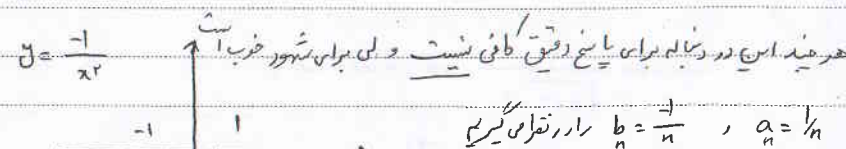 هر چند این دو دنباله برای پاسخ دقیق کافی نیست ولی برای شهود خوب است
y = -1/x²
a_n = 1/n , b_n = -1/n را در نظر می گیریم
-1 1